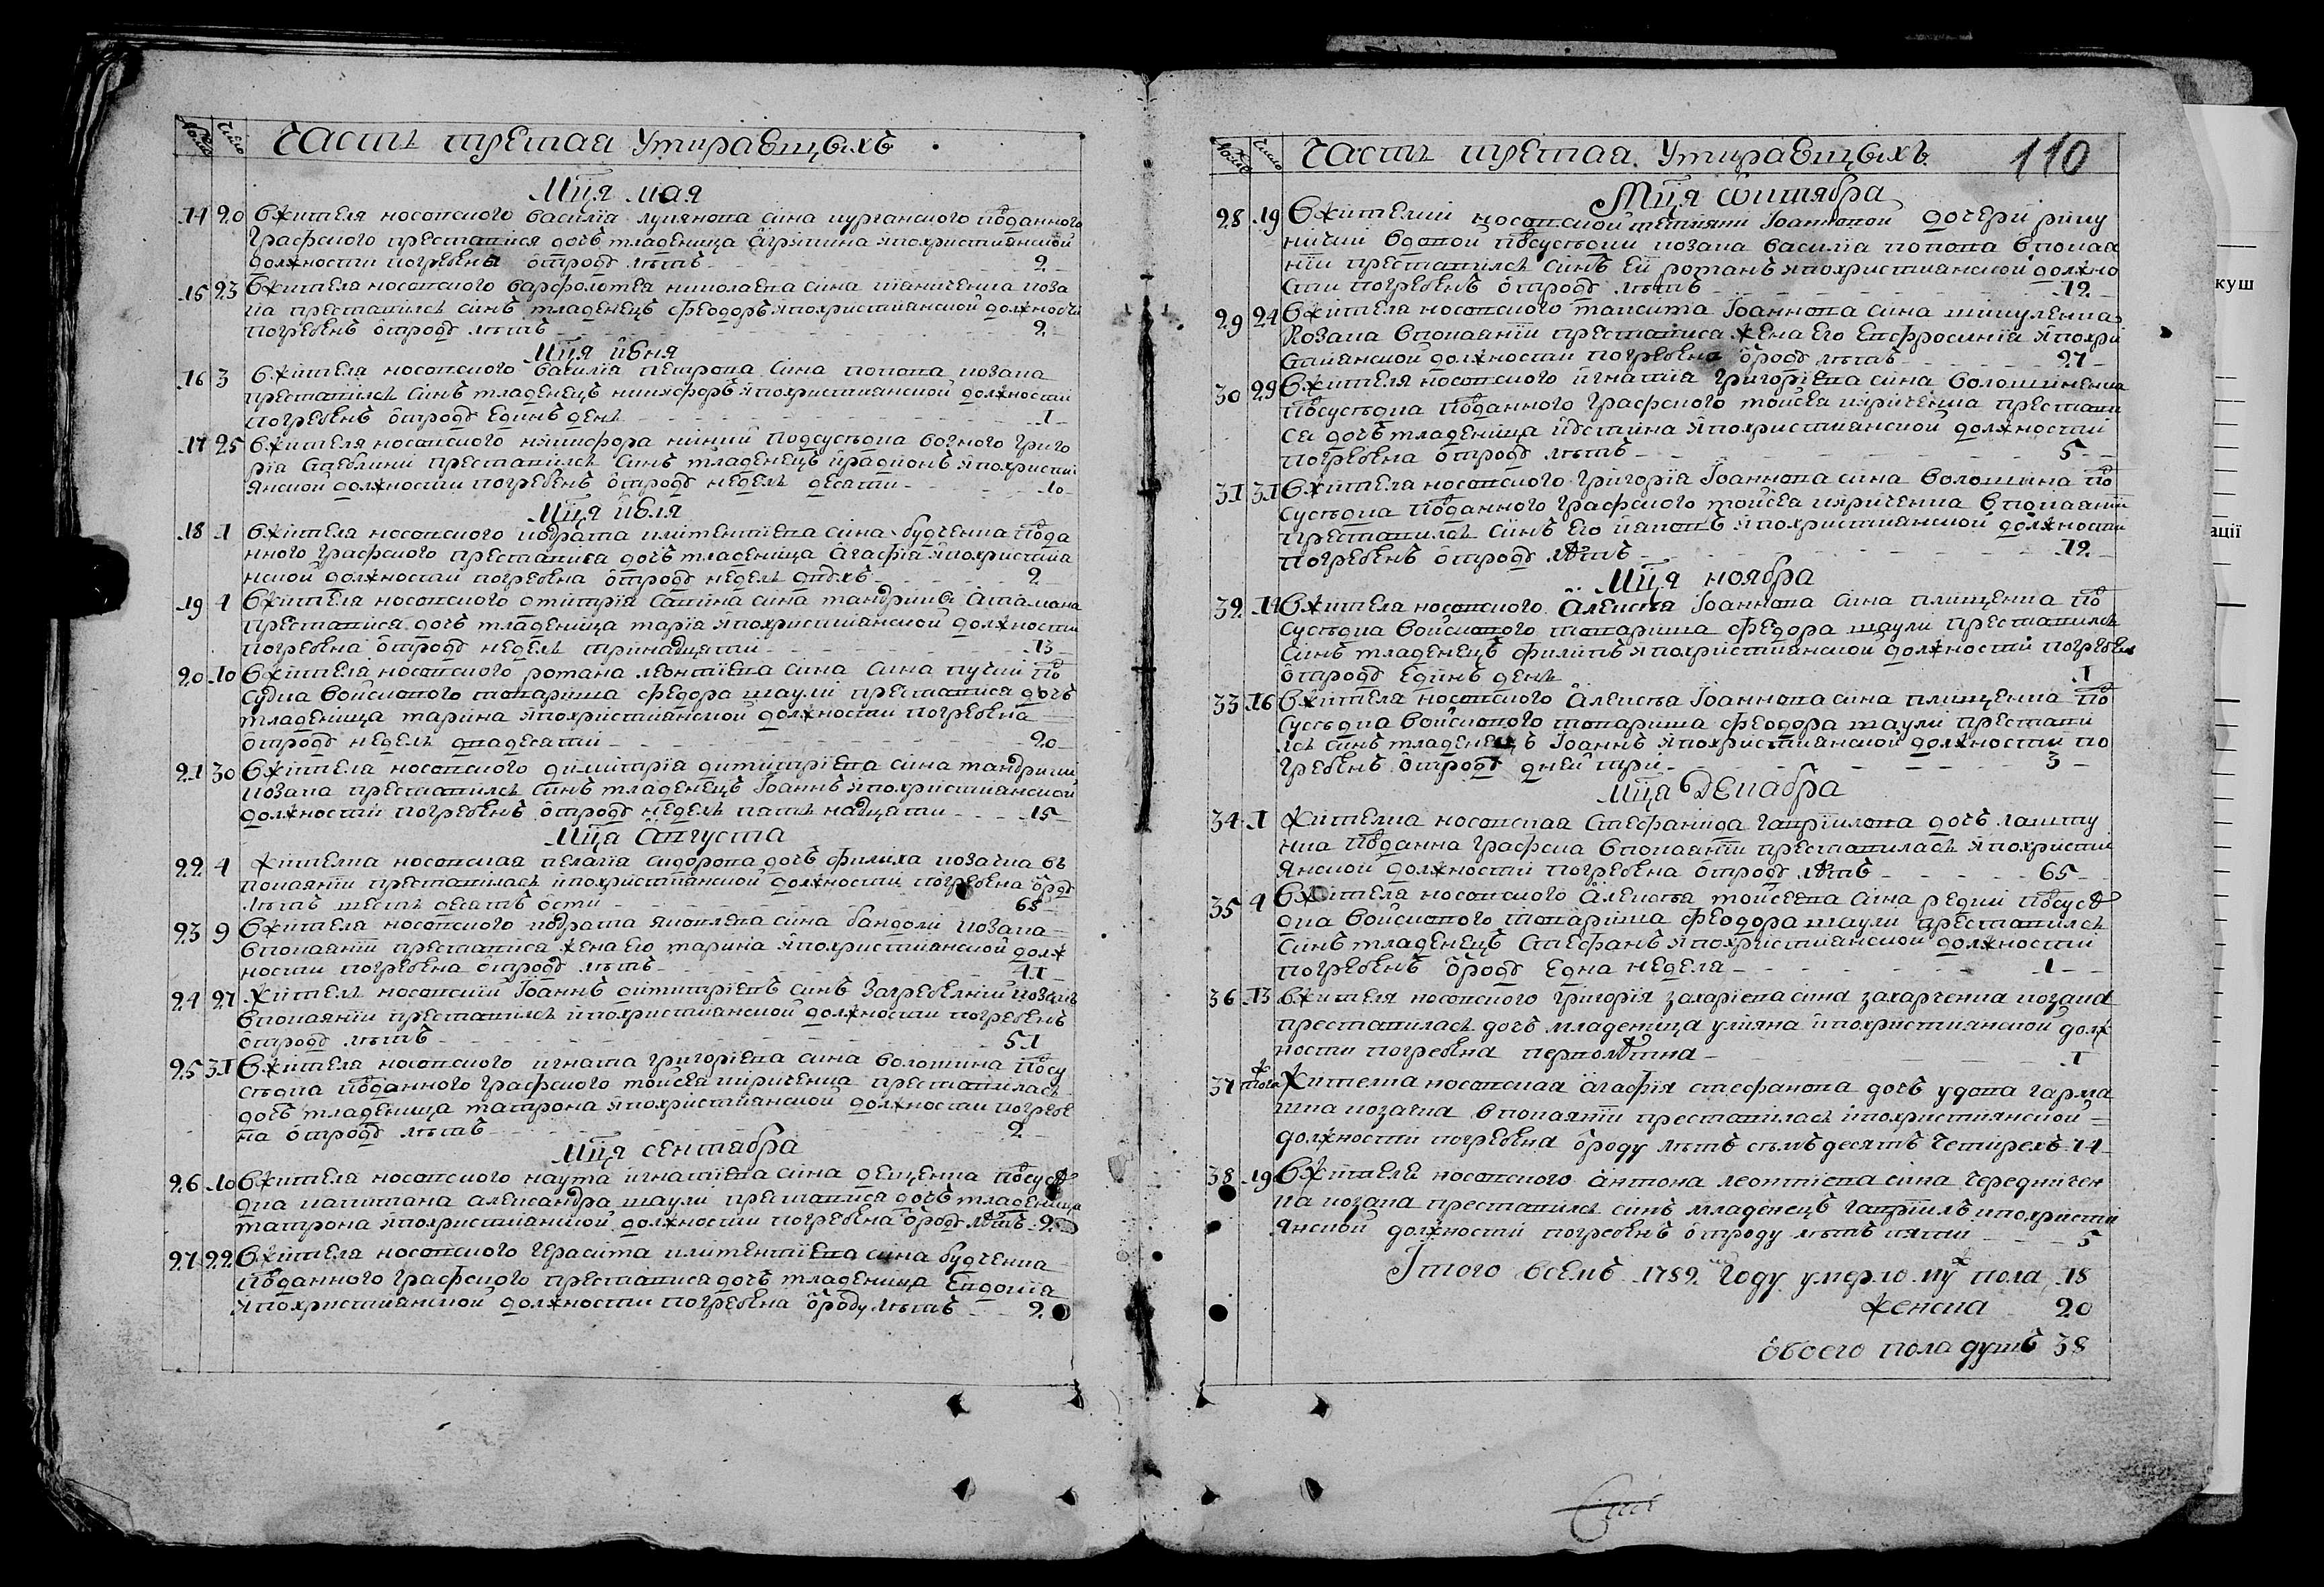 Части третая Умиравщыхъ
Мця мая
14 20 Ꙋжителя носовского василїа лукянова сина курганского подданного
Графского преставися дочъ младеница агрипина и похристиянской
должности погребена ѿ роду лѣтъ 2
15 23 Ꙋжителя носовского варфоломея николаева сина
ка преставился синъ младенецъ феодоръ и похристиянской должности
погребенъ ѿ роду лѣтъ 2
Мця июня
16 3 Ꙋжителя носовского василїя петрова сина попова козака
преставился синъ младенецъ никифоръ и похристиянской должности
погребенъ ѿ роду единъ день 1
17 25 Ꙋжителя носовского никифора подсусѣдка Григо
рїя преставился синъ младенецъ иродионъ и похристи
янской должности погребенъ ѿ роду недель десяти 10
Мця июля
18 1 Ꙋжителя носовского кодрата климентїева сина будченка подда
нного графского преставися дочъ младеница агафїя и похристия
нской должности погребена ѿ роду недель двохъ 2
19 4 Ꙋжителя носовского димитрїя савина сина мандрики атамана
преставися дочъ младеница марїя и похристиянской должности
погребена ѿ роду недель тринадцяти 13
20 10 Ꙋжителя носовского романа леонтїева сина под
судка войскового товариша федора шаули преставися дочъ
младеница марина и похристиянской должности погребена
ѿ роду недель двадесяти 20
21 30 Ꙋжителя носовского димитрїя димитрїева сина мандрики
козака преставился синъ младенецъ Иоаннъ и похристиянской
должности погребенъ ѿ роду недель пятьнадцяти 15
Мця Августа
22 4 Жителка носовская пелагїя сидорова дочъ филиха козачка въ
покаянїи преставилась и похристиянской должности погребена ѿ роду
лѣтъ шестьдесятъ ости 68
23 9 Ꙋжителя носовского кодрата яковлева сина бандоли козака
в покаянїи преставися жена его марина и похристиянской долж
ности погребена ѿ роду лѣтъ 41
24 27 Жителъ носовский Иоаннъ димитрїевъ синъ Загребелний козакъ
в покаянїи преставился и похристиянской должности погребенъ
ѿ роду лѣтъ 51
25 31 Ꙋжителя носовского игната григорїева сина волошина подсу
сѣдка подданного графского мойсея кириченка преставилась
дочъ младеница матрона и похристиянской должности погребе
на ѿ роду лѣтъ 2
Мця сентабра
26 10 Ꙋжителя носовского наума игнатїева сина подсусѣ
дка капитана александра шаули преставися дочъ младеница
матрона и похристиянской должности погребена ѿ роду лѣтъ 2
27 22 Ꙋжителя носовского герасима климентїева сина будченка
подданного графского преставися дочъ младеница Евдокия
и похристиянской должности погребена ѿ роду лѣтъ 2
Части третая Умиравщыхъ 110
Мця октябра
28 19 Ꙋжителки носовской Иоанновой дочери
вдовой подсусѣдки козака василїа попова в покая
нїи преставился синъ ей романъ и похристиянской должно
сти погребенъ ѿ роду лѣтъ 12
29 24 Ꙋжителя носовского максима Иоаннова сина
козака в покаянїи преставися жена его Евфросинїя и похри
стиянской должности погребена ѿ роду лѣтъ 27
30 29 Ꙋжителя носовского игнатїя григорїева сина волошиненка
подсусѣдка подданного графского мойсея кириченка престави
ся дочъ младеница и похристиянской должности
погребена ѿ роду лѣтъ 5
31 31 Ꙋжителя носовского григорїя Иоаннова сина волошина под
сусѣдка подданного графского мойсея кириченка в покаянїи
преставился синъ его и похристиянской должности
погребенъ ѿ роду лѣтъ 12
Мця ноября
32 11 Ꙋжителя носовского Алексѣя Иоаннова сина под
сусѣдка войскового товариша федора шаули преставился
синъ младенецъ филипъ и похристиянской должности погребенъ
ѿ роду единъ день 1
33 16 Ꙋжителя носовского Алексѣя Иоаннова сина под
сусѣдка войскового товариша феодора шаули престави
лся синъ младенецъ Иоаннъ и похристиянской должности по
гребенъ ѿ роду дней три 3
Мця Декабра
34 1 Жителка носовская Стефанида гаврїилова дочъ
подданка графска в покаянїи преставилась и похристи
янской должности погребена ѿ роду лѣтъ 65
35 4 Ꙋжителя носовского Алексѣя мойсеева сина редки подсусѣ
дка войскового товариша феодора шаули преставился
синъ младенецъ стефанъ и похристиянской должности
погребенъ ѿ роду една неделя 1
36 13 Ꙋжителя носовского григорїя захарїева сина захарченка козака
преставилась дочъ младеница улияна и похристиянской долж
ности погребена 1
37 тогож Жителка носовская Агафїя стефанова дочъ удова
козачка в покаянїи преставилась и похристиянской
должности погребена ѿ роду лѣтъ семъдесятъ четирехъ 74
38 19 Ꙋжителя носовского Антона леонтїева сина чередничен
ка козака преставился синъ младенецъ гаврїилъ и похристи
янской должности погребенъ ѿ роду лѣтъ пяти 5
Итого всемъ 1789 году умерло муж пола 18
женска 20
обоего пола душъ 38
куш
ації